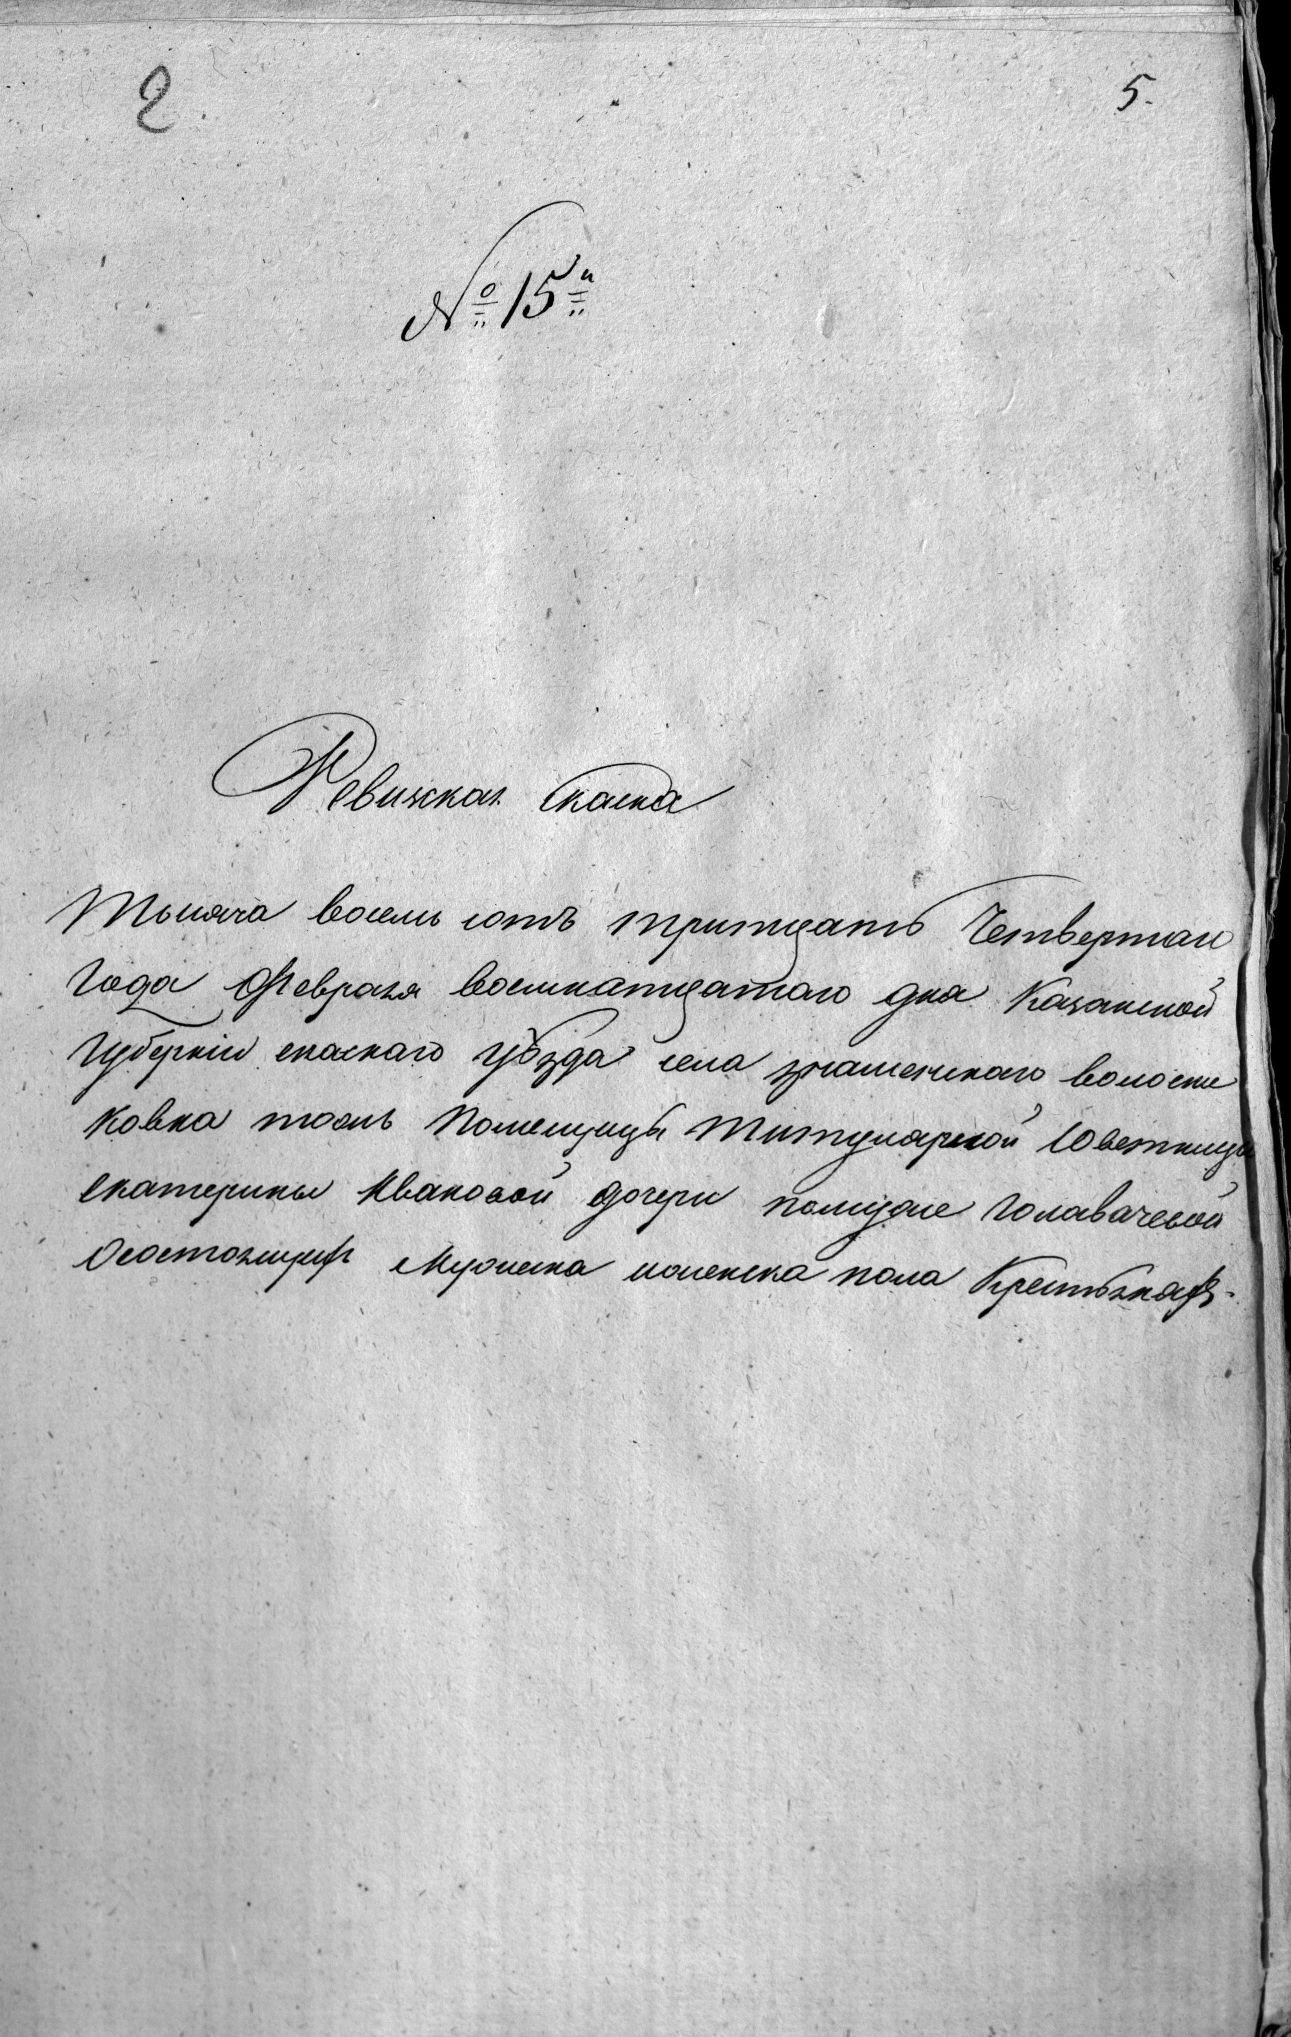 2.
5.
№ 15й
Ревижская скаска
Тысяча восемь сотъ тритцать Четвертаго
Года Февраля восемнатцатаго дня Казанской
Губернiи спаскаго уѣзда села знаменскаго волости
ковка тожъ Помещицы Титулярной Советницы
екатерины Ивановой дочери Голавачевой
Осостоящихъ Мужеска иженска пола Крестьянахъ